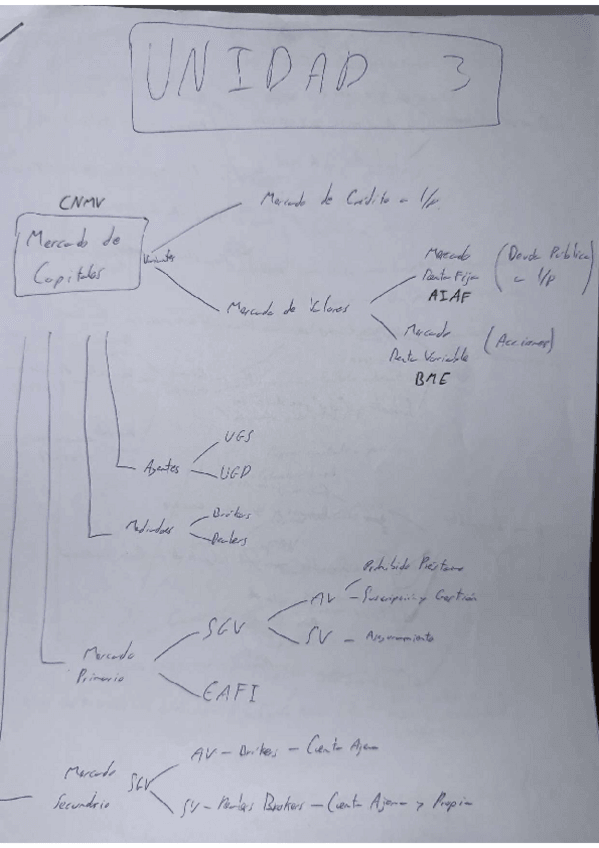 UNIDAD 3
CNMV
Mercado de
Capitales
Variantes
Mercado de Crédito a l/p
Mercado de Valores
Mercado
Renta Fija
AIAF
(Deuda Pública
a l/p)
Mercado
Renta Variable
BME
(Acciones)
Agentes
UGS
UGD
Mediadores
Brókers
Dealers
Mercado
Primario
SGV
AV
Prohibido Préstamo
Suscripción y Gestión
SV - Aseguramiento
EAFI
Mercado
Secundario
SGV
AV - Brókers - Cuenta Ajena
SV - Dealers Brokers - Cuenta Ajena y Propia